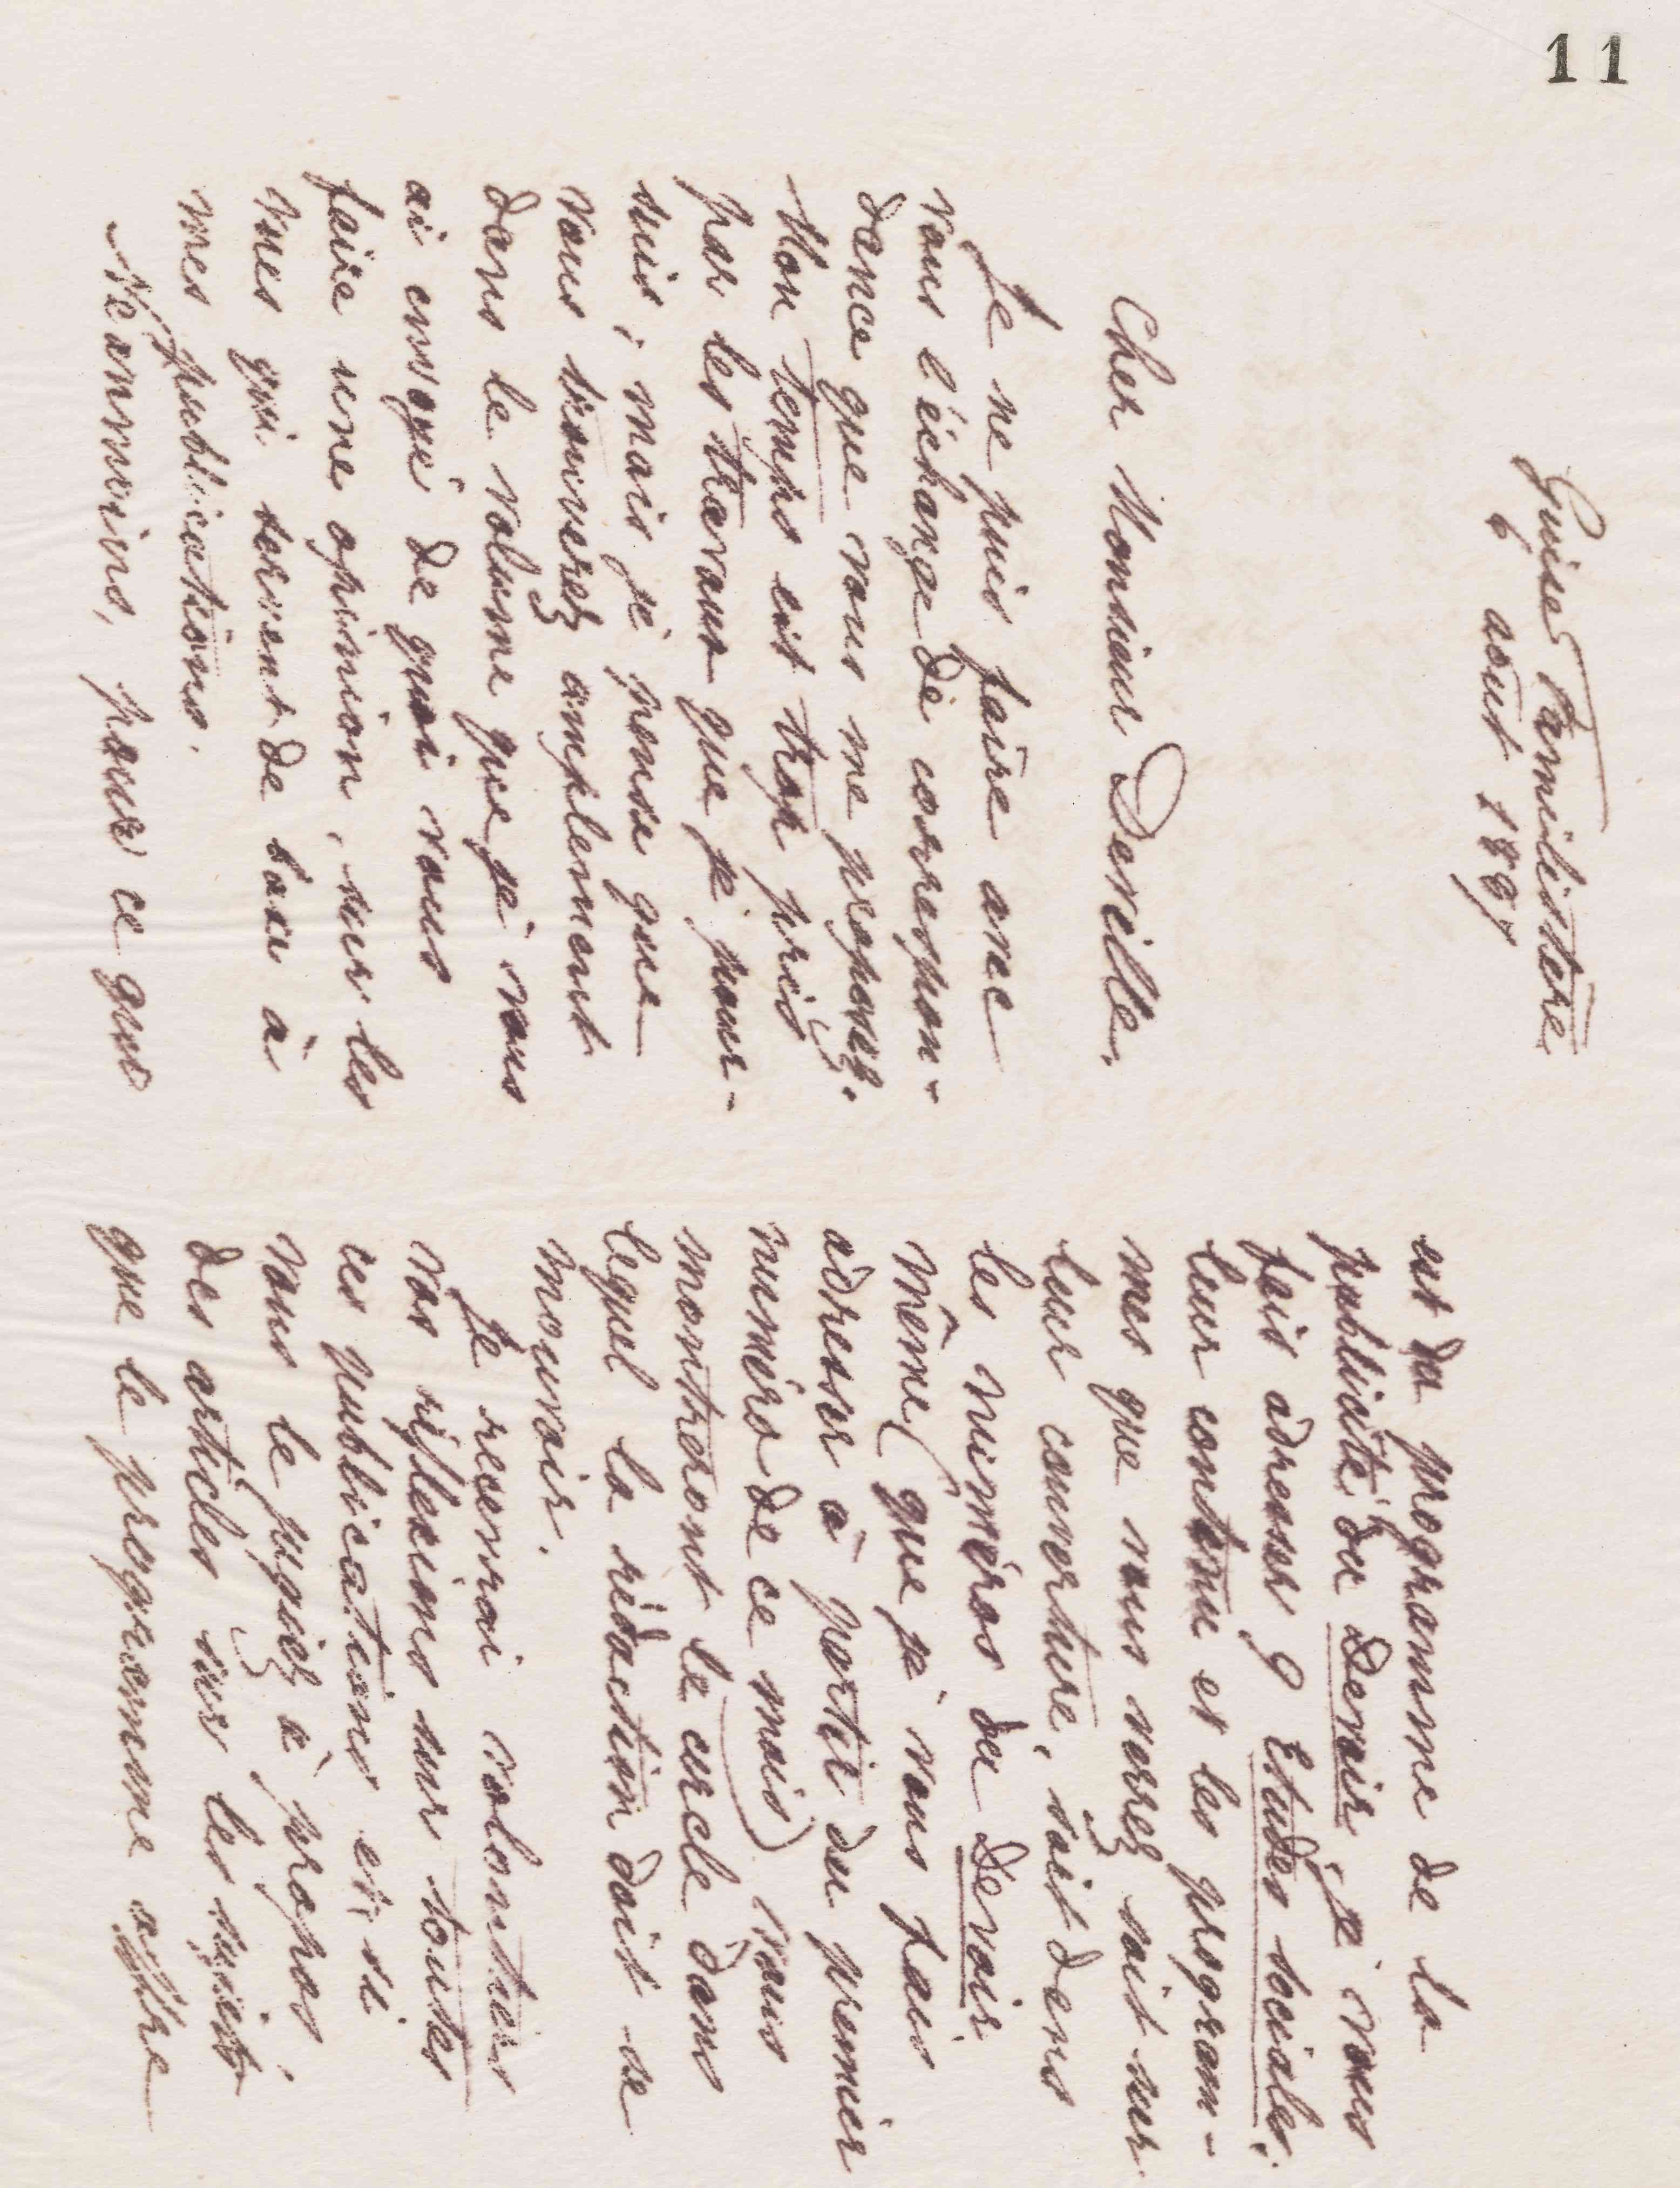 11
Guise Familistère
6 août 1887
Cher Monsieur Deville,
Je ne puis faire avec
vous l'échange de correspon-
dance que vous me proposez.
Mon temps est trop pris
par les travaux que je pour-
suis ; mais je pense que
vous trouverez amplement
dans le volume que je vous
ai envoyé de quoi vous
faire une opinion, sur les
vues qui servent de base à
mes publications.
Néanmoins, pour ce qui
est du programme de la
publicité du Devoir, je vous
fais adresser 9 Etudes sociales ;
leur contenu et les program-
mes que vous verrez soit sur
leur couverture, soit dans
les numéros du Devoir
même (que je vous fais
adresser à partir du premier
numéro de ce mois) vous
montreront le cercle dans
lequel la rédaction doit se
mouvoir.
Je recevrai volontiers
vos réflexions sur toutes
ces publications et, si
vous le jugiez à propos,
des articles sur les sujets
que le programme